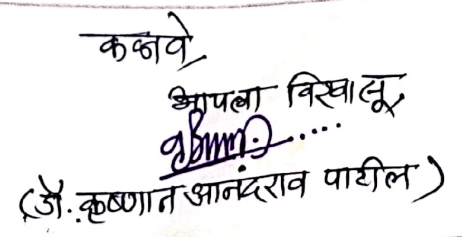 कळावे,
आपला विश्वासू,
(डॉ. कृष्णात आनंदराव पाटील)